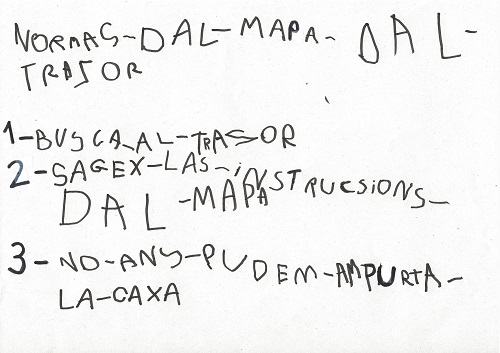 NORMAS-DAL-MAPA-DAL-
TRASOR
1-BUSCA-AL-TRASOR
2-SAGEX-LAS-iNSTRUCSIONS-
DAL-MAPA
3-NO-ANS-PUDEM-AMPURTA-
LA-CAXA